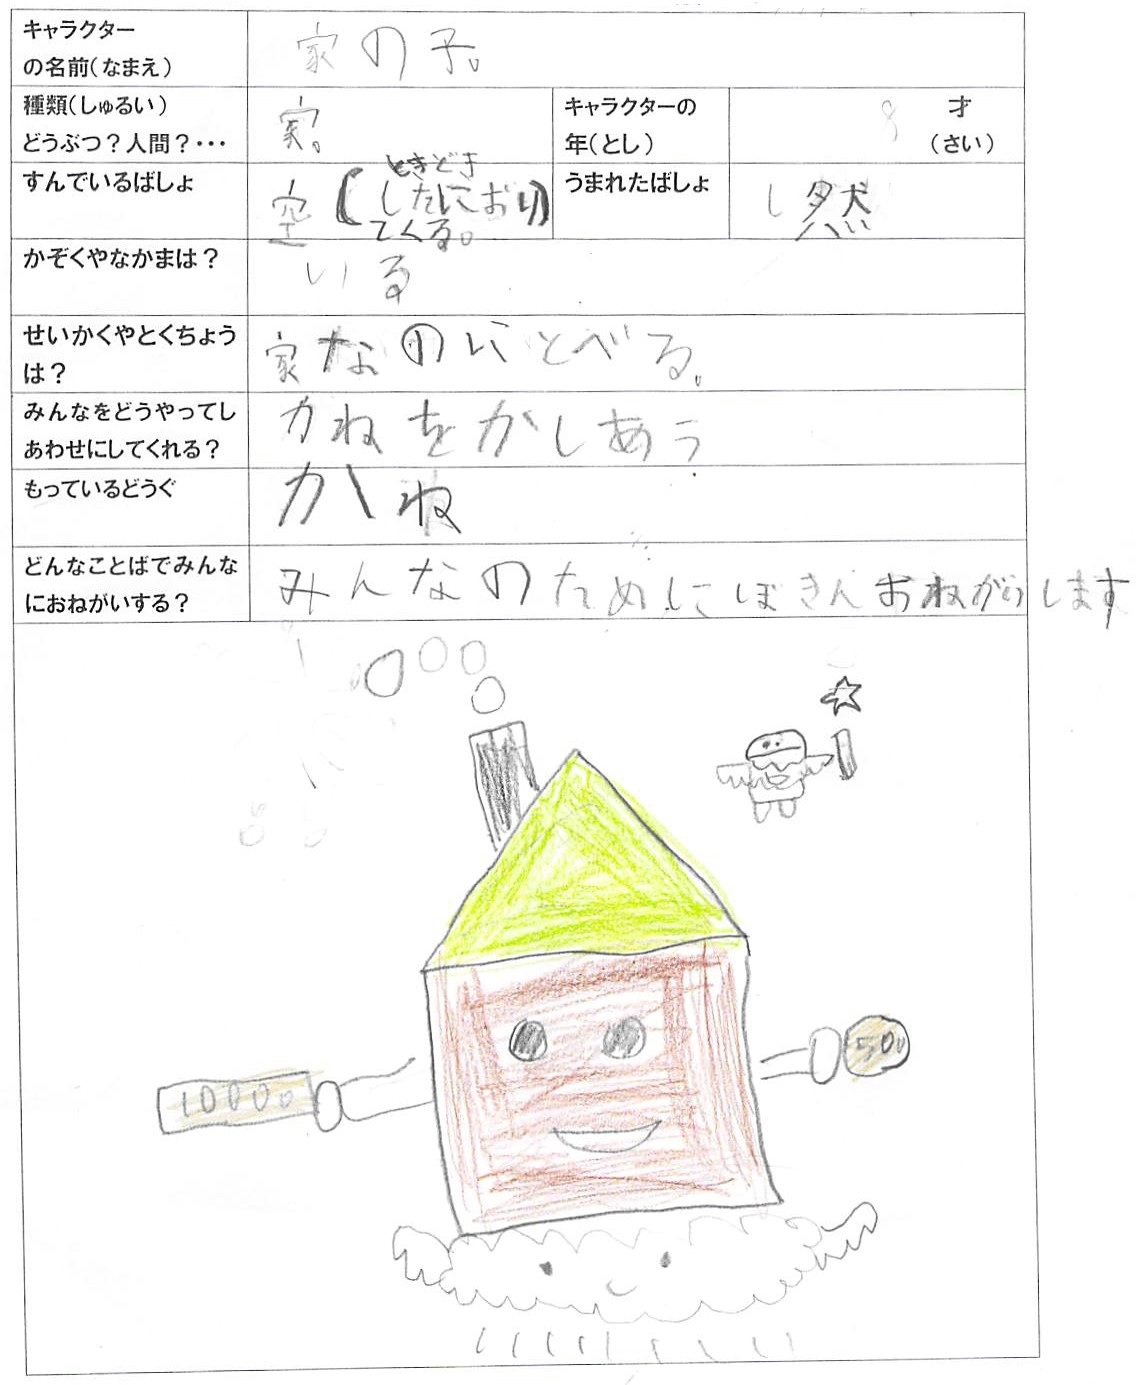 キャラクター
の名前(なまえ)
家の子。
種類(しゅるい)
どうぶつ？人間？・・・
家。
キャラクターの
年(とし)
8 才
(さい)
すんでいるばしょ
空(ときどき
したにおり)
てくる。
うまれたばしょ
し然
かぞくやなかまは？
いる
せいかくやとくちょう
は？
家なのにとべる。
みんなをどうやってし
あわせにしてくれる？
かねをかしあう
もっているどうぐ
かね
どんなことばでみんな
におねがいする？
みんなのためにぼきんおねがいします
10000
500